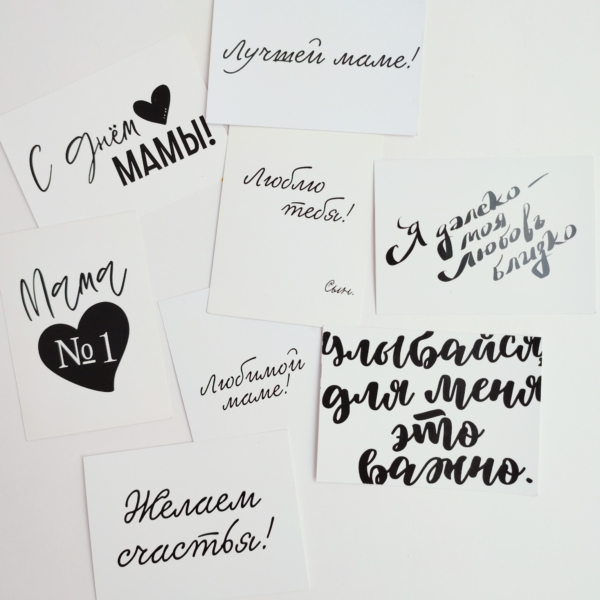 Лучшей маме!
С днём
МАМЫ!
Люблю
тебя!
Сын.
Я далеко –
моя
любовь
близко
Мама
№1
Любимой
маме!
Улыбайся,
для меня
это
важно.
Желаем
счастья!